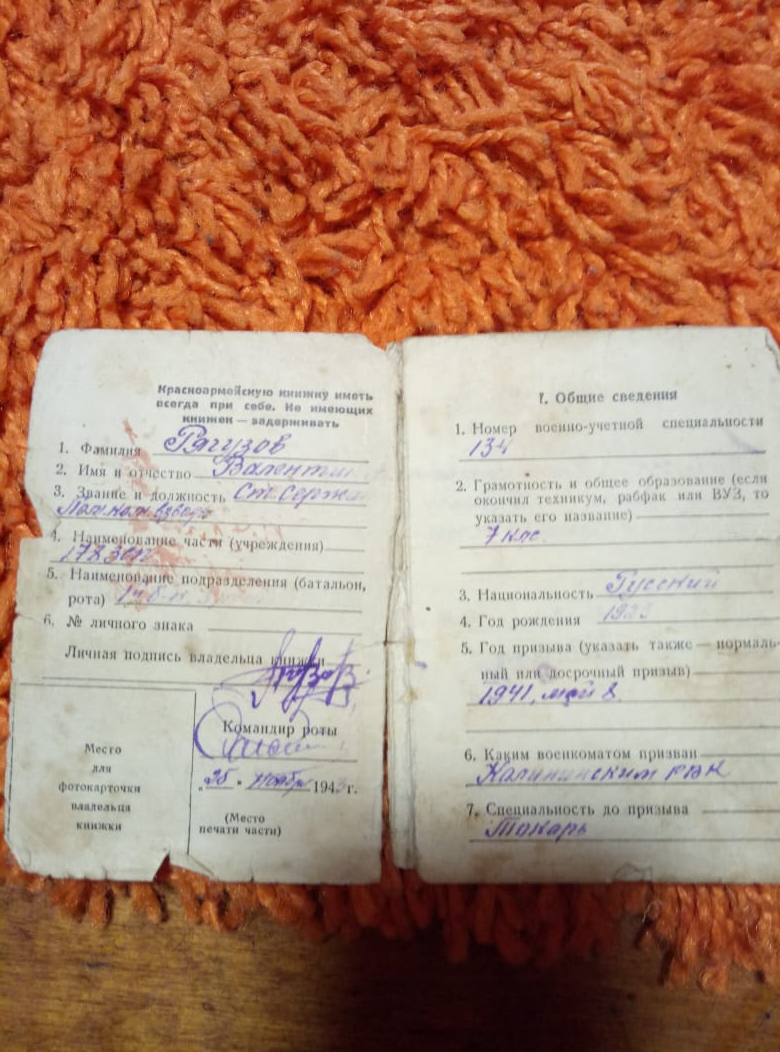 Красноармейскую книжку иметь
всегда при себе. Не имеющих
книжек — задерживать
1. Фамилия Рагузов
2. Имя и отчество Валентин
3. Звание и должность Ст. Сержа
Пом. ком. взвода
4. Наименование части (учреждения)
178 зсп
5. Наименование подразделения (батальон,
рота)
6. № личного знака
Личная подпись владельца книжки
Командир роты
„25" ноября 1943 г.
Место
для
фотокарточки
владельца
книжки
(Место
печати части)
I. Общие сведения
1. Номер военно-учетной специальности
134
2. Грамотность и общее образование (если
окончил техникум, рабфак или ВУЗ, то
указать его название)
7 клас.
3. Национальность Русский
4. Год рождения
5. Год призыва (указать также — нормаль-
ный или досрочный призыв)
1941, май 8.
6. Каким военкоматом призван
Калининским РВК
7. Специальность до призыва
Токарь